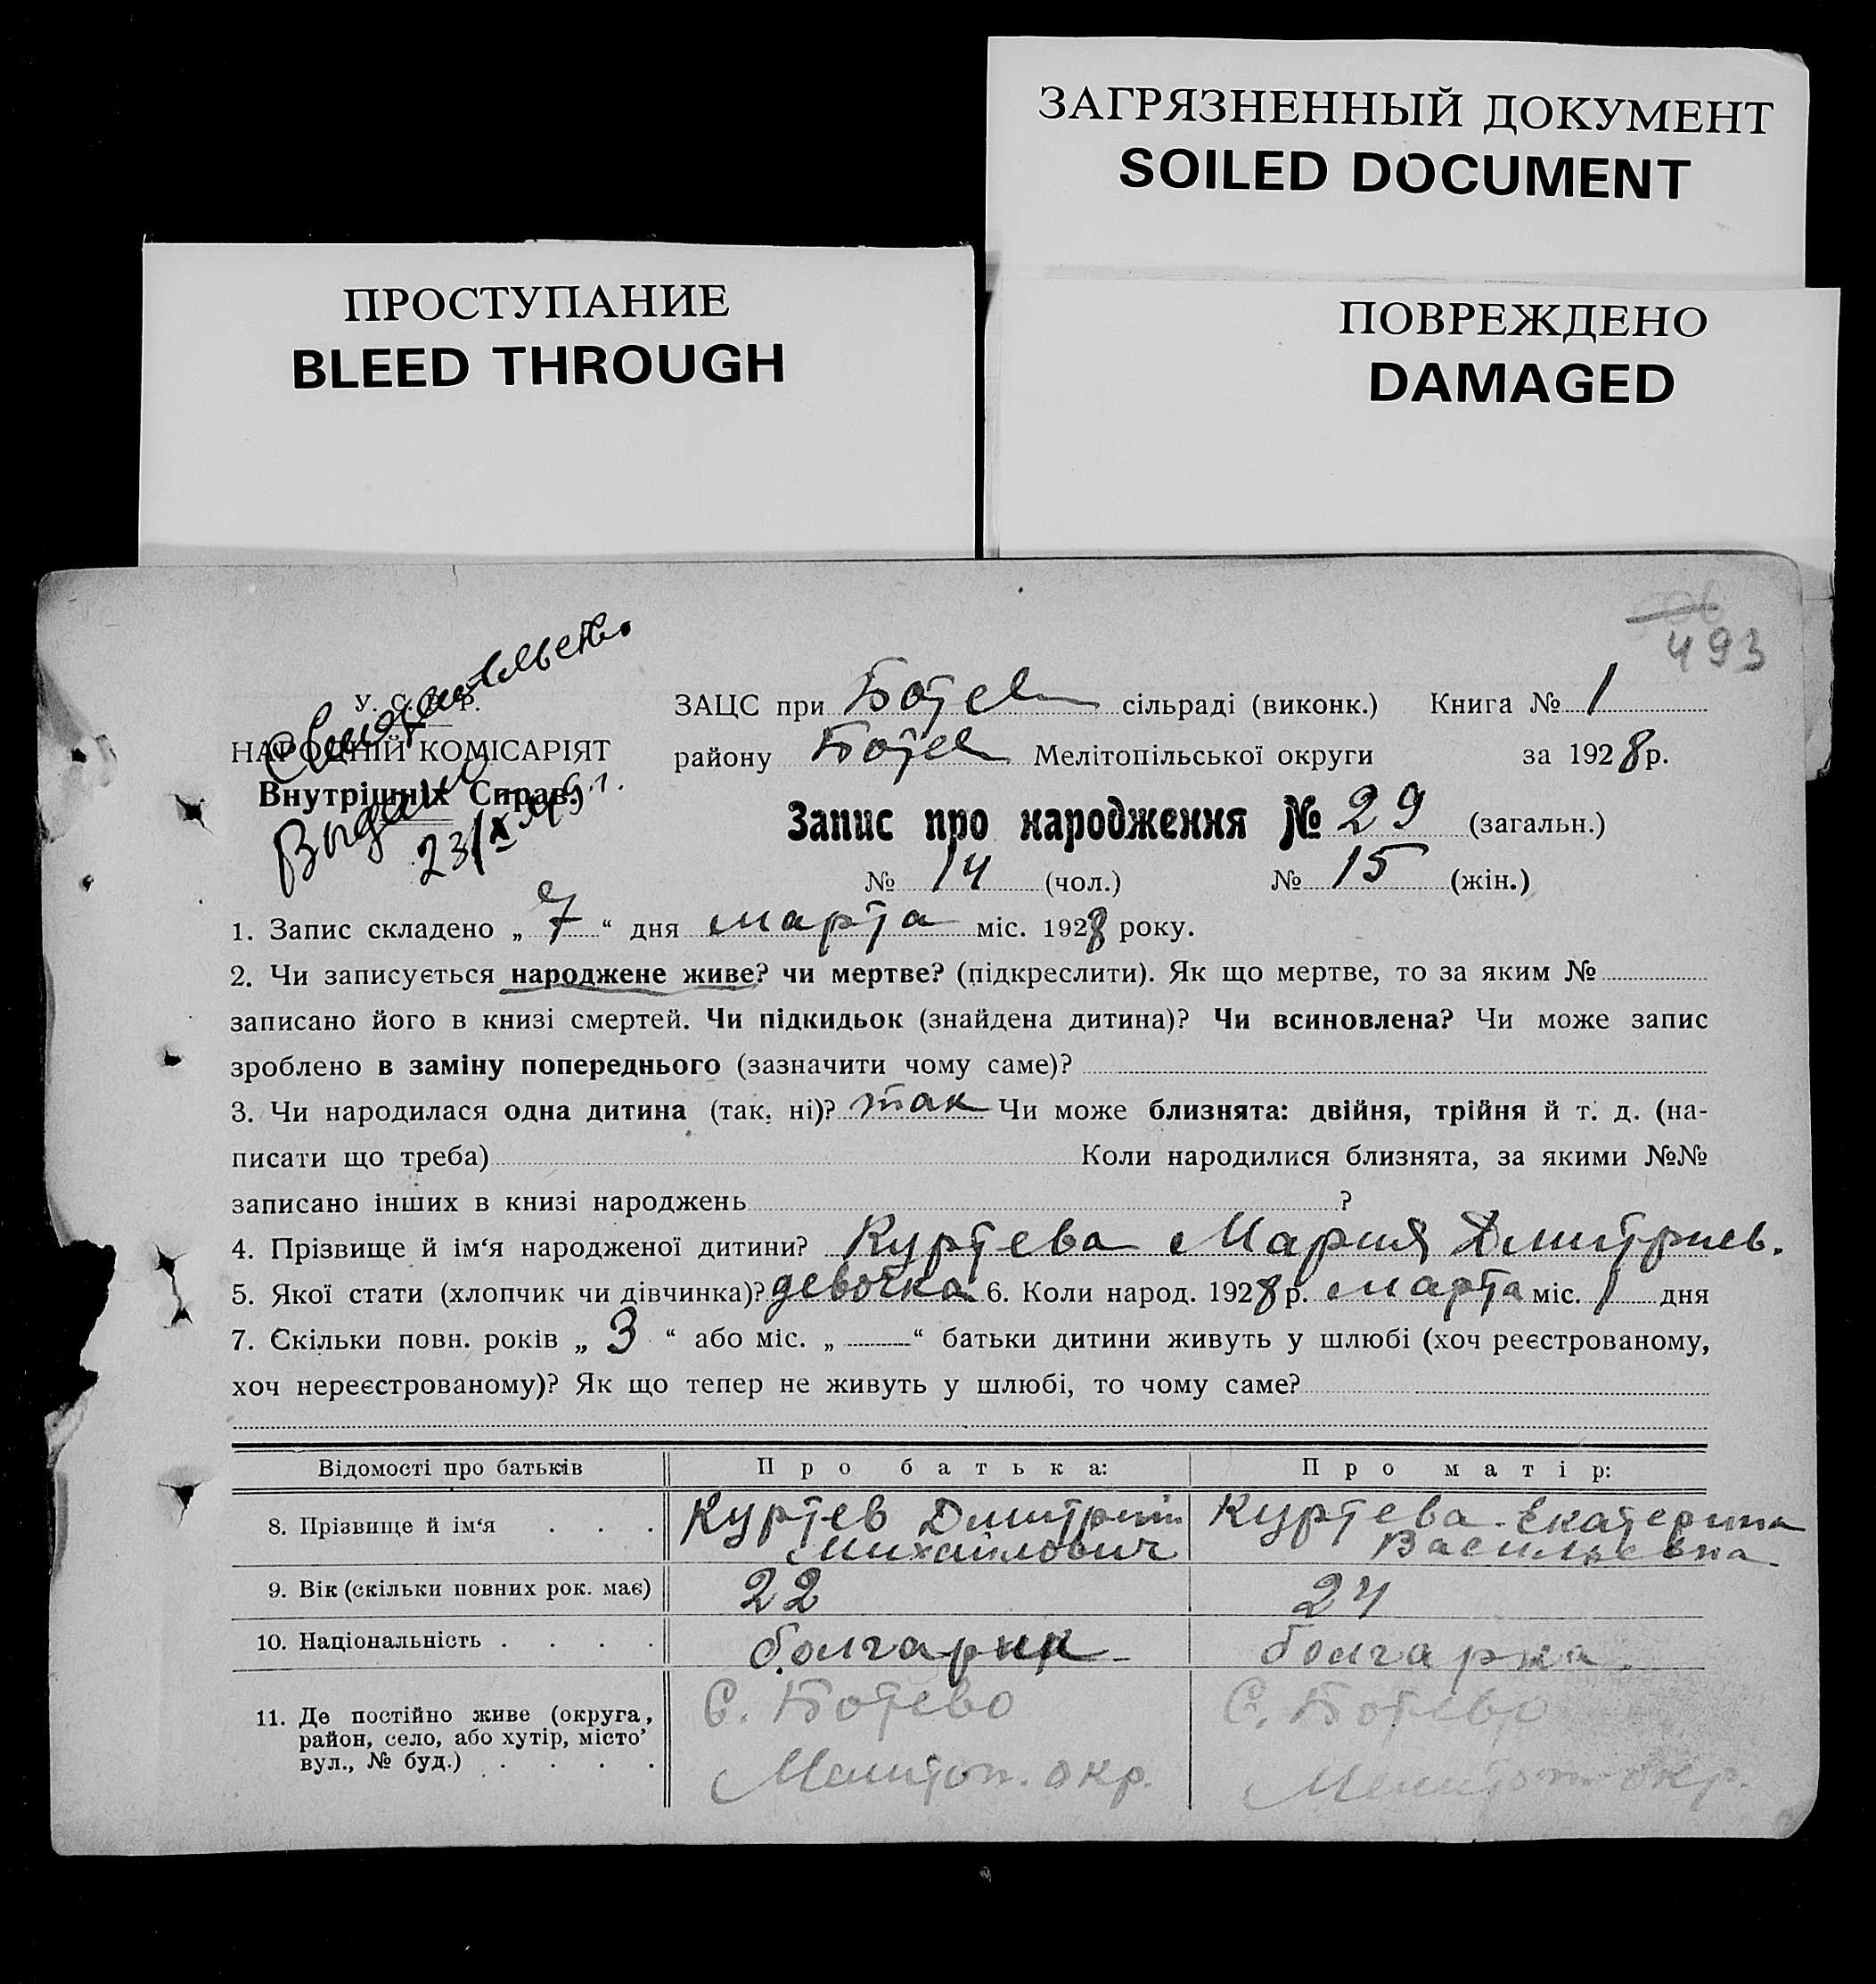 ЗАГРЯЗНЕННЫЙ ДОКУМЕНТ
SOILED DOCUMENT
ПРОСТУПАНИЕ
BLEED THROUGH
ПОВРЕЖДЕНО
DAMAGED
493
У. С. Р. Р.
НАРОДНІЙ КОМІСАРІЯТ
Внутрішніх Справ.
Свидетельство
Выдано
23/X
ЗАЦС при Ботев сільраді (виконк.) Книга № 1
району Ботев Мелітопільської округи за 1928 р.
Запис про народження № 29 (загальн.)
№ 14 (чол.) № 15 (жін.)
1. Запис складено „ 7 “ дня марта міс. 1928 року.
2. Чи записується народжене живе? чи мертве? (підкреслити). Як що мертве, то за яким №
записано його в книзі смертей. Чи підкидьок (знайдена дитина)? Чи всиновлена? Чи може запис
зроблено в заміну попереднього (зазначити чому саме)?
3. Чи народилася одна дитина (так, ні)? так Чи може близнята: двійня, трійня й т. д. (на-
писати що треба) Коли народилися близнята, за якими №№
записано інших в книзі народжень ?
4. Прізвище й ім‘я народженої дитини? Куртева Мария Дмитриев.
5. Якої стати (хлопчик чи дівчинка)? девочка 6. Коли народ. 1928 р. марта міс. 1 дня
7. Скільки повн. років „ 3 “ або міс. „ — “ батьки дитини живуть у шлюбі (хоч реєстрованому,
хоч нереєстрованому)? Як що тепер не живуть у шлюбі, то чому саме?
Відомості про батьків Про батька: Про матір:
8. Прізвище й ім‘я . . . Куртев Дмитрий Михайлович Куртева Екатерина Васильевна
9. Вік (скільки повних рок. має) 22 24
10. Національність . . . . болгарин болгарка
11. Де постійно живе (округа, район, село, або хутір, місто’ вул., № буд.) . . . . С. Ботево Мелитоп. окр. С. Ботево Мелитоп. окр.